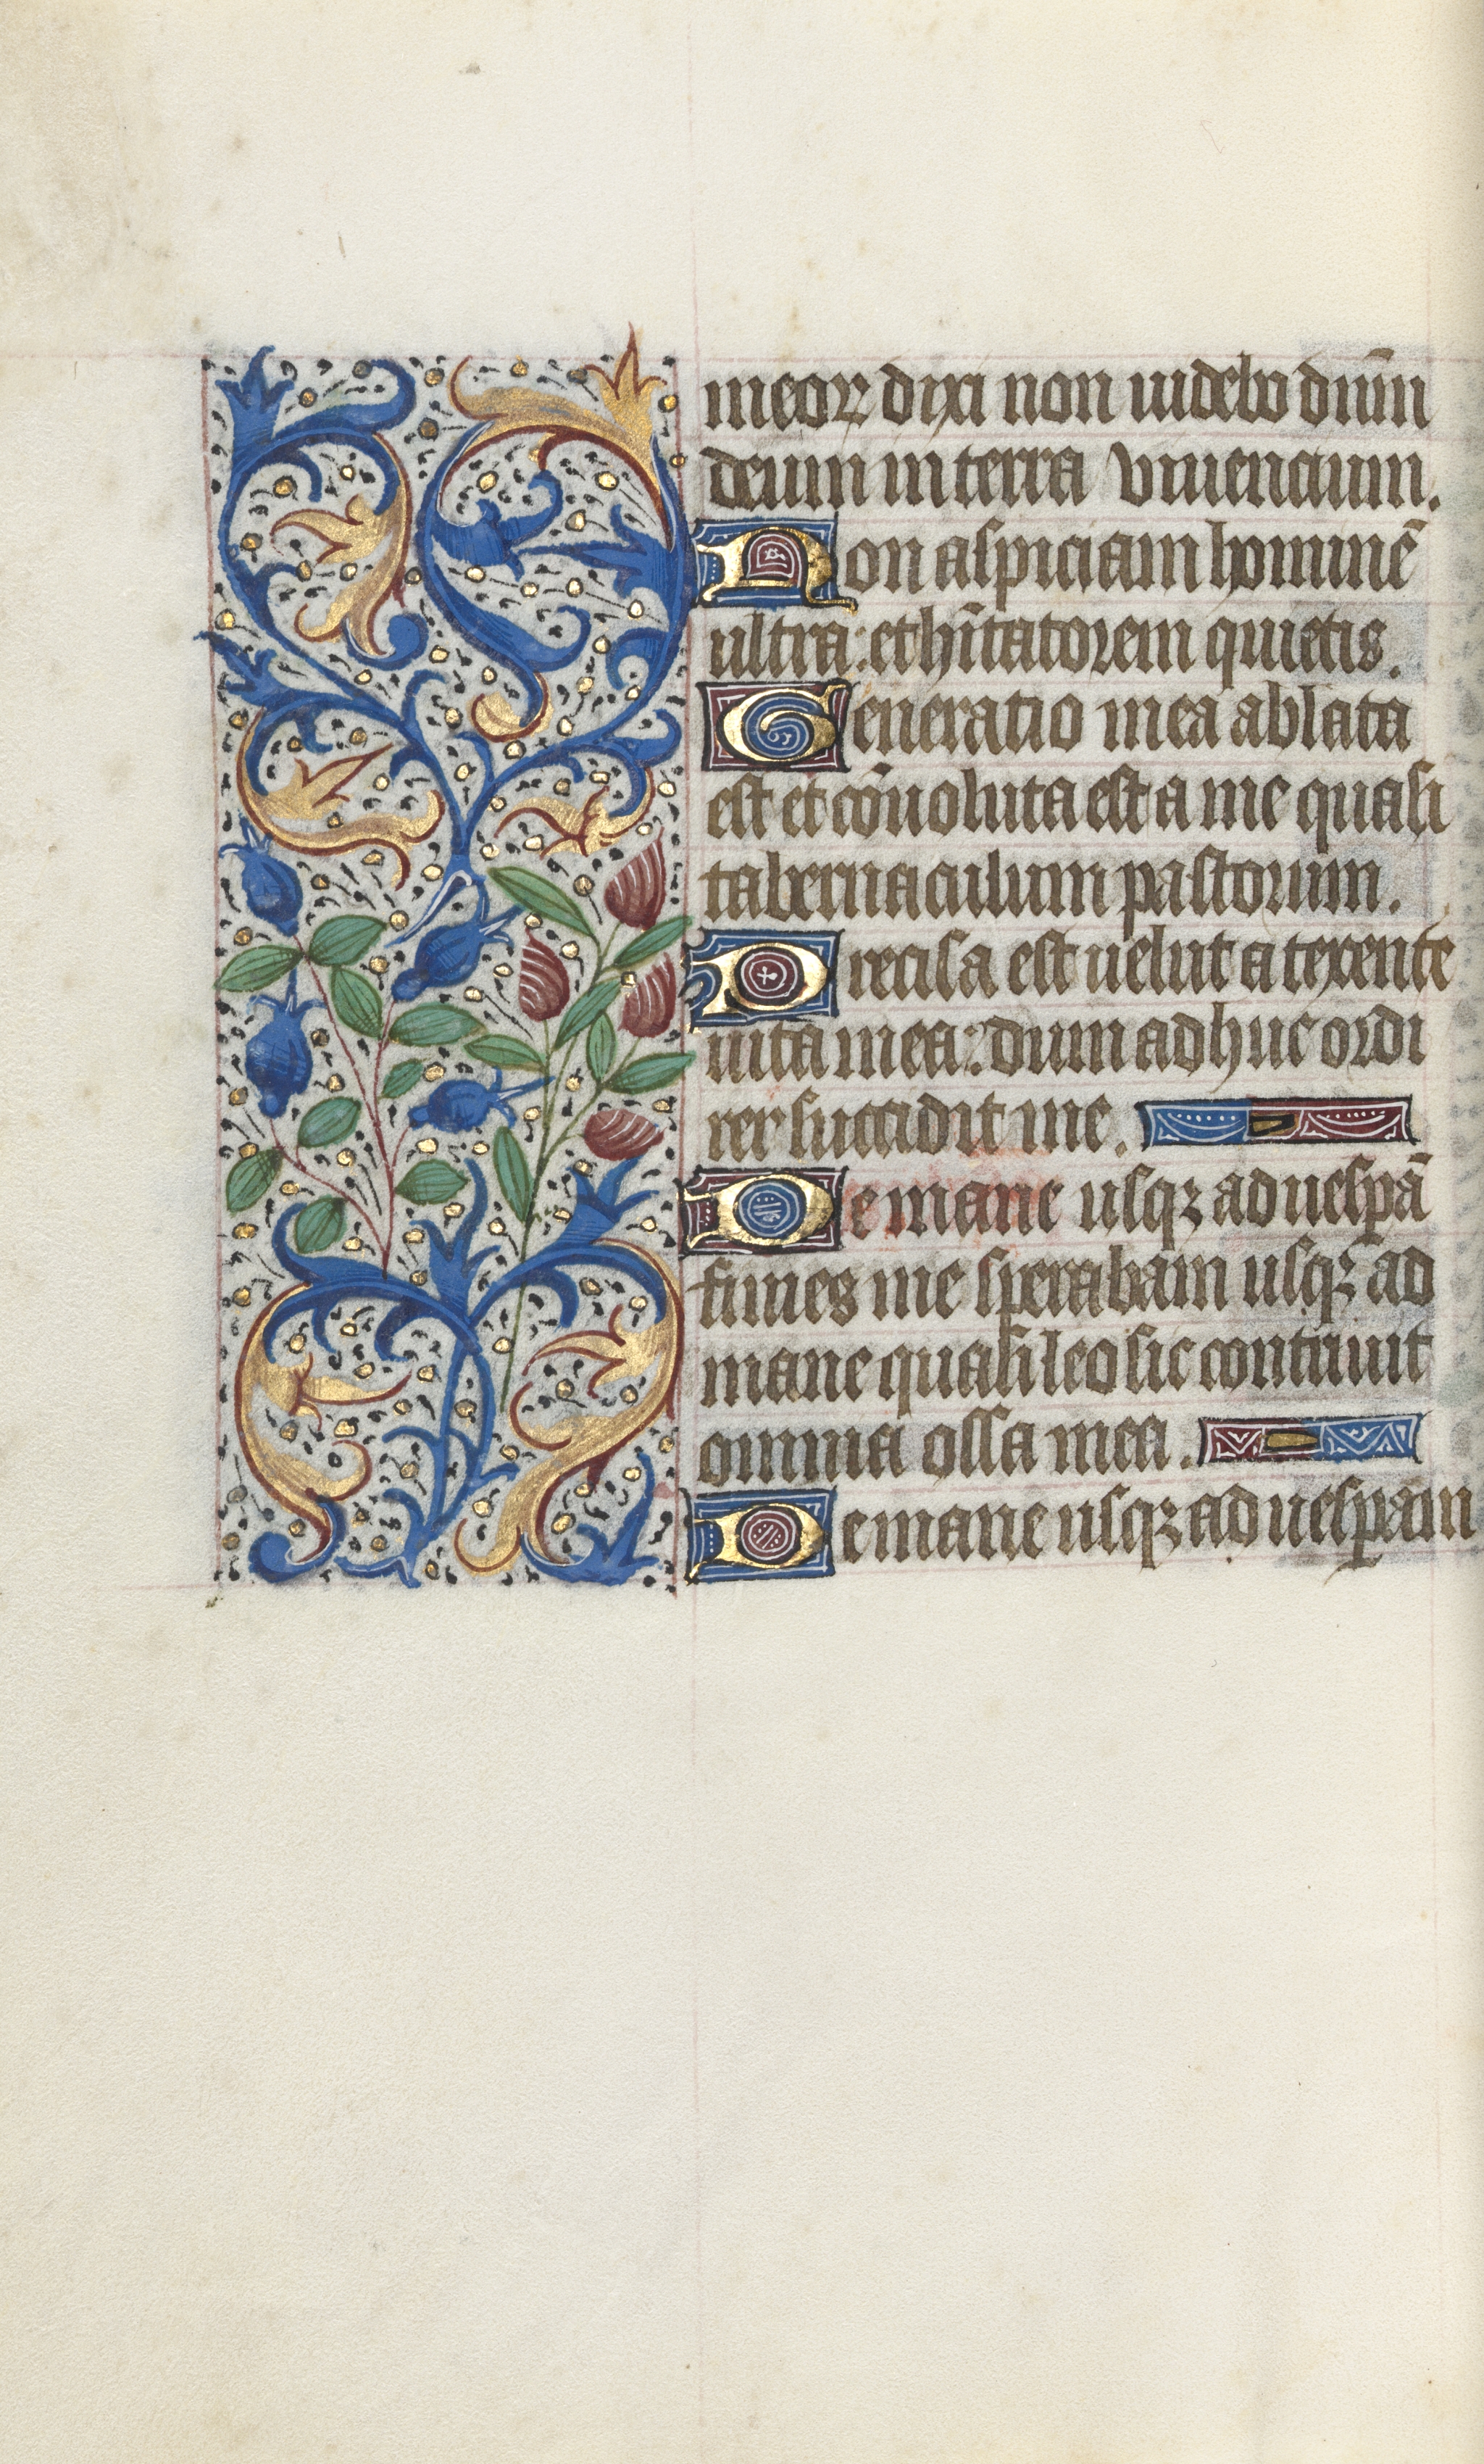 meoꝝ dixi non uidebo dn̄m
deum in terra viuencium.
Non aspiciam hominē
ultra: et hītatorem quietis.
Generatio mea ablata
est et cōuoluta est a me quasi
tabernaculum pastorum.
Precisa est uelut a texente
uita mea: dum adhuc ordi
rer succidit me.
De mane usqꝫ ad uespā
finies me sperabam usqꝫ ad
mane quasi leo sic contriuit
omnia ossa mea.
De mane usqꝫ ad uesꝑam